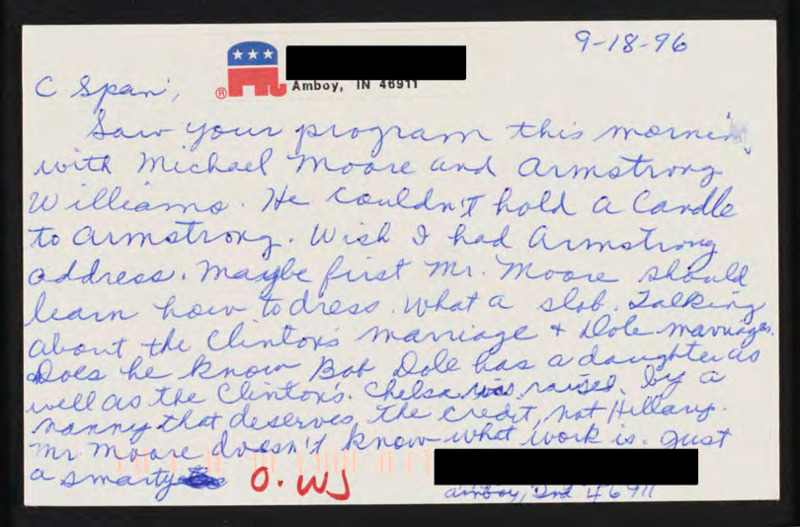 9-18-96
® Amboy, IN 46911
C Span,
Saw your program this mornin
with Michael Moore and Armstrong
Williams. He couldn't hold a Candle
to Armstrong. Wish I had Armstrong
address. Maybe first Mr. Moore should
learn how to dress. What a slob. Talking
about the Clinton's marriage & Dole marriage.
Does he know Bob Dole has a daughter as
well as the Clinton's. Chelsa was raised by a
nanny that deserves the credit, not Hillary.
Mr Moore doesn't know what work is. Just
a smarty
O.WJ
Amboy, Ind 46911